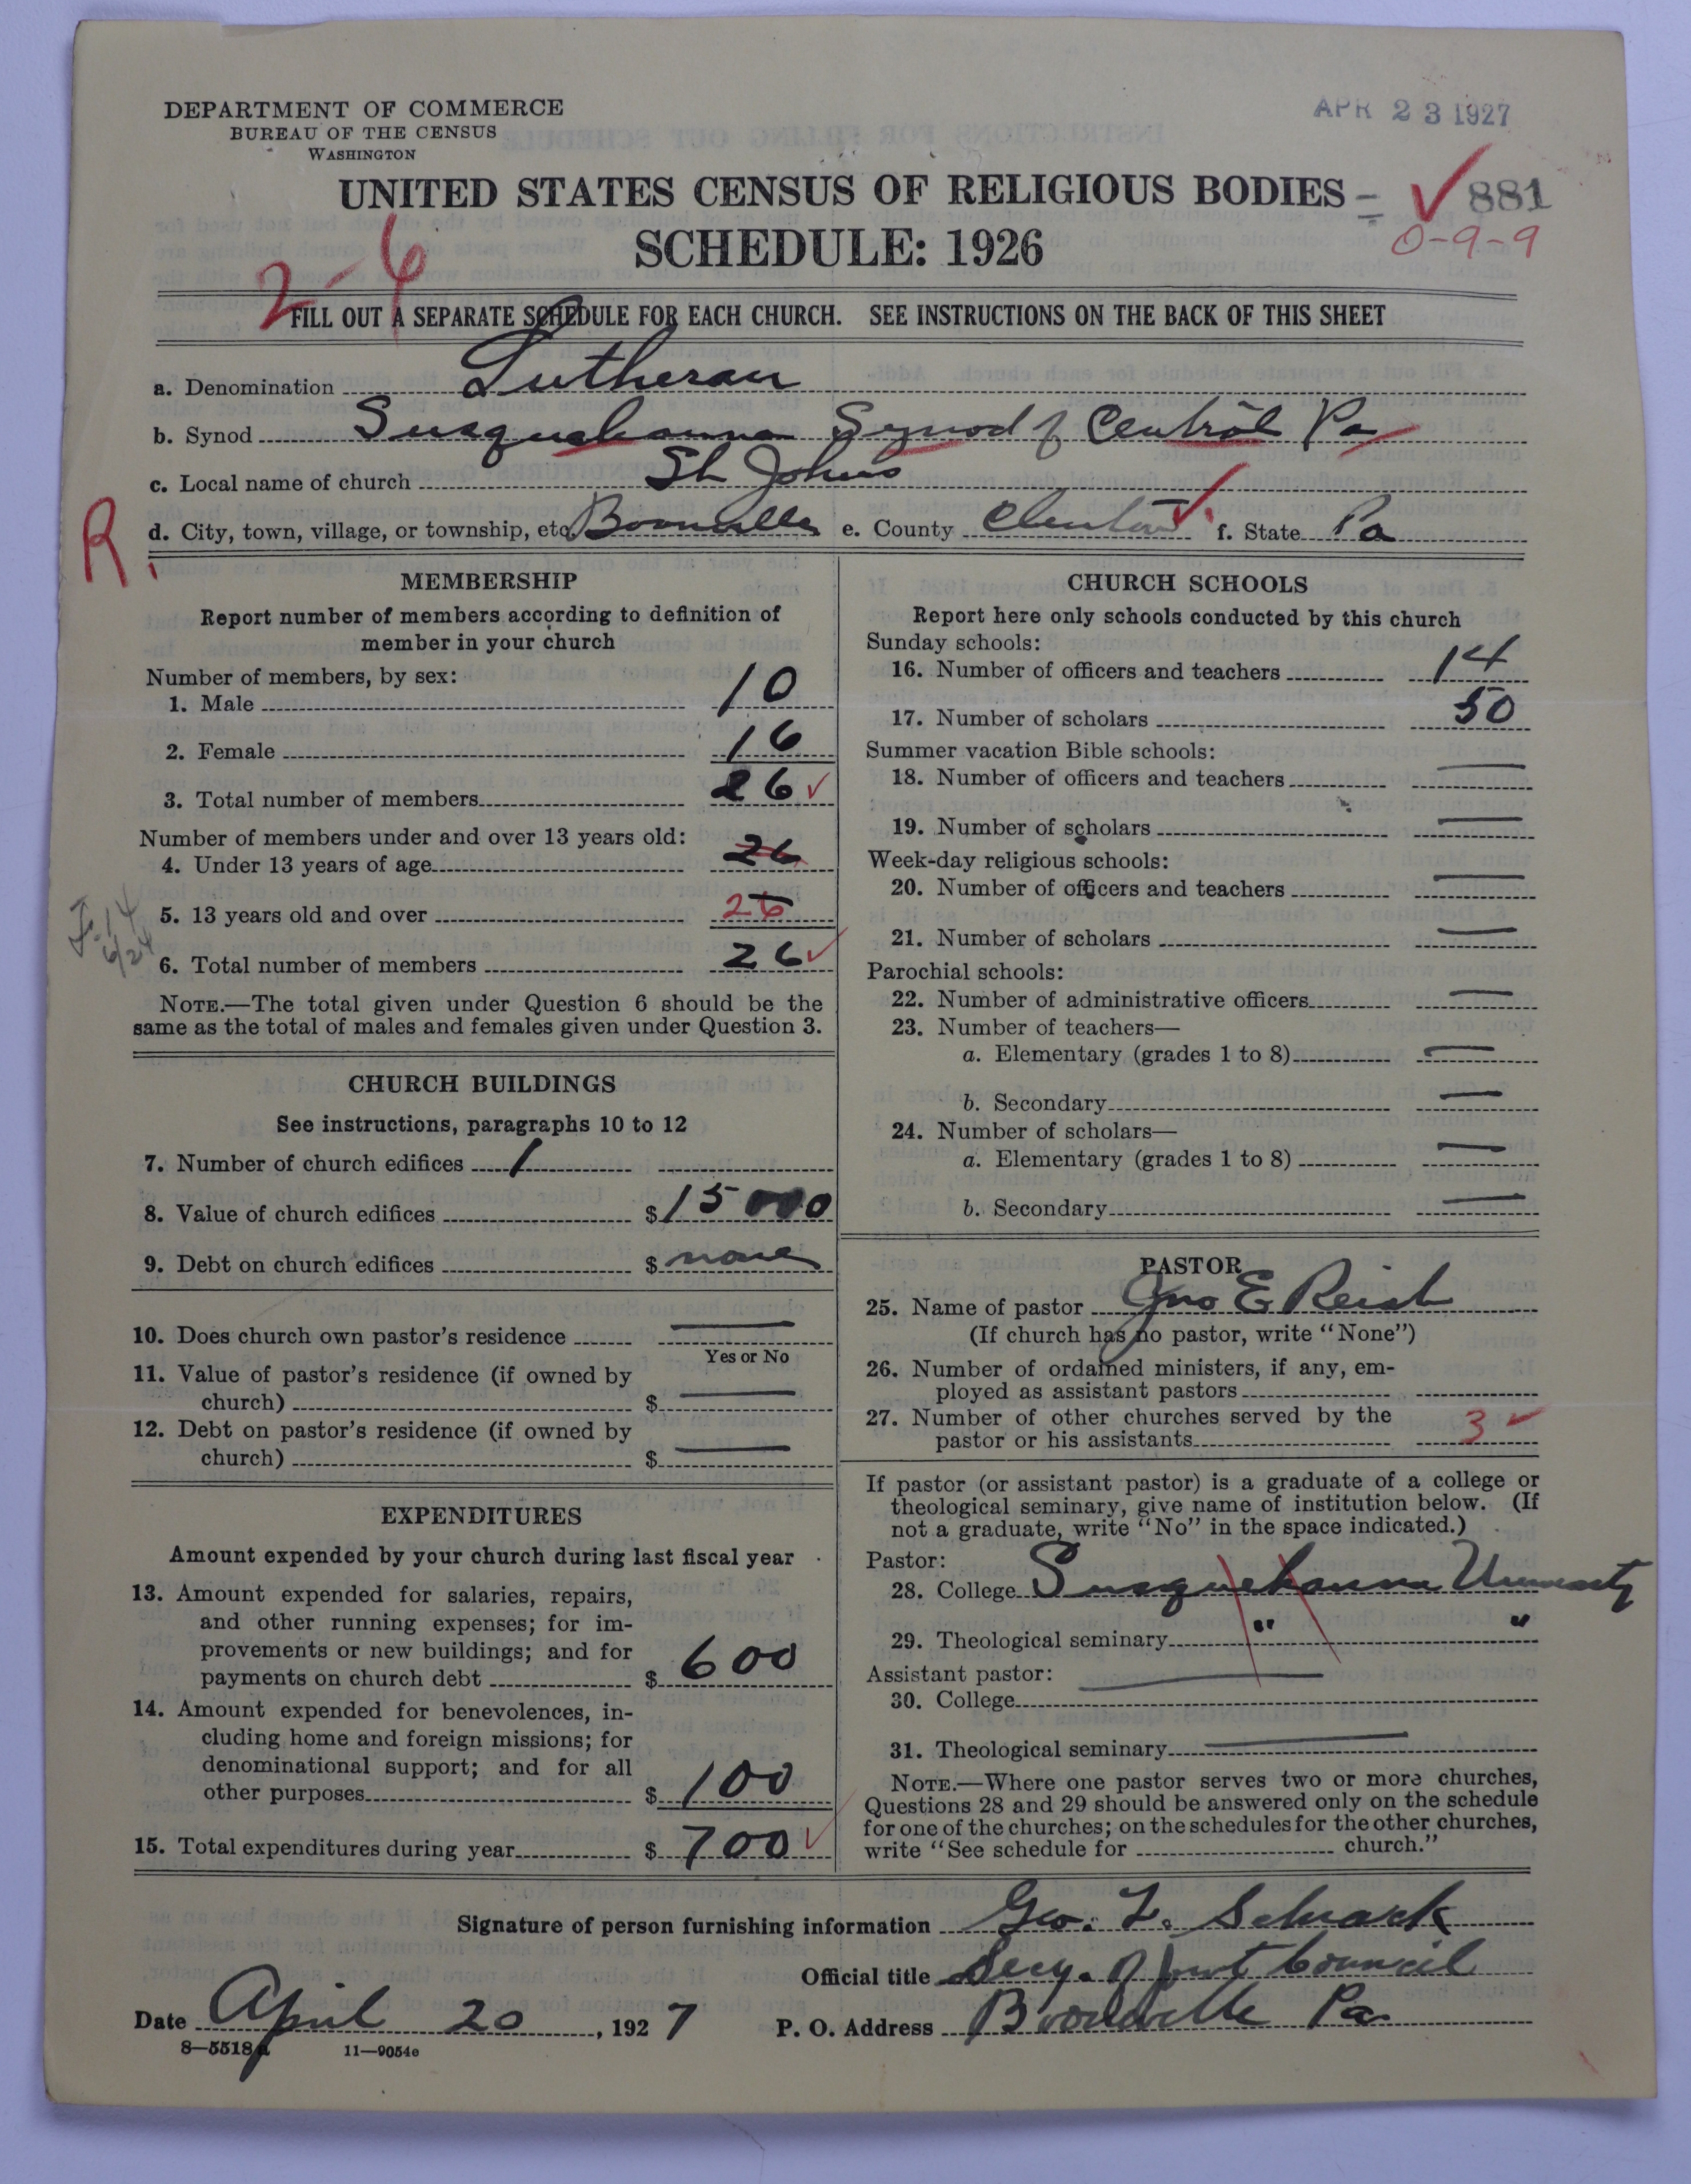 DEPARTMENT OF COMMERCE
BUREAU OF THE CENSUS
WASHINGTON
APR 23 1927
UNITED STATES CENSUS OF RELIGIOUS BODIES
881
SCHEDULE: 1926
0-9-9
2-6
FILL OUT A SEPARATE SCHEDULE FOR EACH CHURCH. SEE INSTRUCTIONS ON THE BACK OF THIS SHEET
a. Denomination Lutheran
b. Synod Susquehanna Synod of Central Pa
c. Local name of church St Johns
R.
d. City, town, village, or township, etc. Booneville e. County Clinton f. State Pa
MEMBERSHIP
Report number of members according to definition of
member in your church
Number of members, by sex:
1. Male 10
2. Female 16
3. Total number of members 26
Number of members under and over 13 years old:
4. Under 13 years of age 26
5. 13 years old and over 26
6. Total number of members 26
NOTE.—The total given under Question 6 should be the
same as the total of males and females given under Question 3.
CHURCH BUILDINGS
See instructions, paragraphs 10 to 12
7. Number of church edifices 1
8. Value of church edifices $15000
9. Debt on church edifices $ none
10. Does church own pastor's residence —
Yes or No
11. Value of pastor's residence (if owned by
church) $ —
12. Debt on pastor's residence (if owned by
church) $ —
EXPENDITURES
Amount expended by your church during last fiscal year
13. Amount expended for salaries, repairs,
and other running expenses; for im-
provements or new buildings; and for
payments on church debt $ 600
14. Amount expended for benevolences, in-
cluding home and foreign missions; for
denominational support; and for all
other purposes $ 100
15. Total expenditures during year $ 700
CHURCH SCHOOLS
Report here only schools conducted by this church
Sunday schools:
16. Number of officers and teachers 14
17. Number of scholars 50
Summer vacation Bible schools:
18. Number of officers and teachers —
19. Number of scholars —
Week-day religious schools:
20. Number of officers and teachers —
21. Number of scholars —
Parochial schools:
22. Number of administrative officers —
23. Number of teachers—
a. Elementary (grades 1 to 8) —
b. Secondary —
24. Number of scholars—
a. Elementary (grades 1 to 8) —
b. Secondary —
PASTOR
25. Name of pastor Jno E Reish
(If church has no pastor, write "None")
26. Number of ordained ministers, if any, em-
ployed as assistant pastors
27. Number of other churches served by the
pastor or his assistants 3
If pastor (or assistant pastor) is a graduate of a college or
theological seminary, give name of institution below. (If
not a graduate, write "No" in the space indicated.)
Pastor:
28. College Susquehanna University
29. Theological seminary " "
Assistant pastor: —
30. College
31. Theological seminary —
NOTE.—Where one pastor serves two or more churches,
Questions 28 and 29 should be answered only on the schedule
for one of the churches; on the schedules for the other churches,
write "See schedule for church."
Signature of person furnishing information Geo. L. Schrack
Official title Secy. of Joint Council
Date April 20, 1927 P. O. Address Booneville Pa.
8—5518a 11—9054e